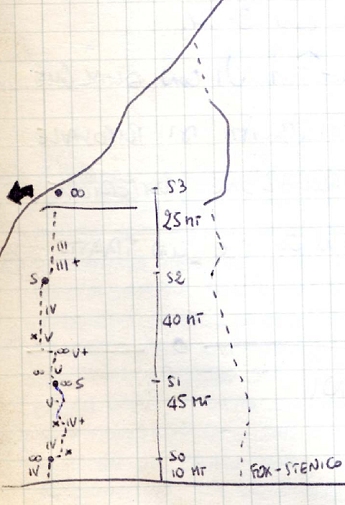 ∞ S3
25 MT
III
III+
S S2
IV
40 MT
x V
∞ V+
∞
∞ S S1
V
45 MT
x IV+
IV
x
∞ S0
IV 10 MT
FOX-STENICO